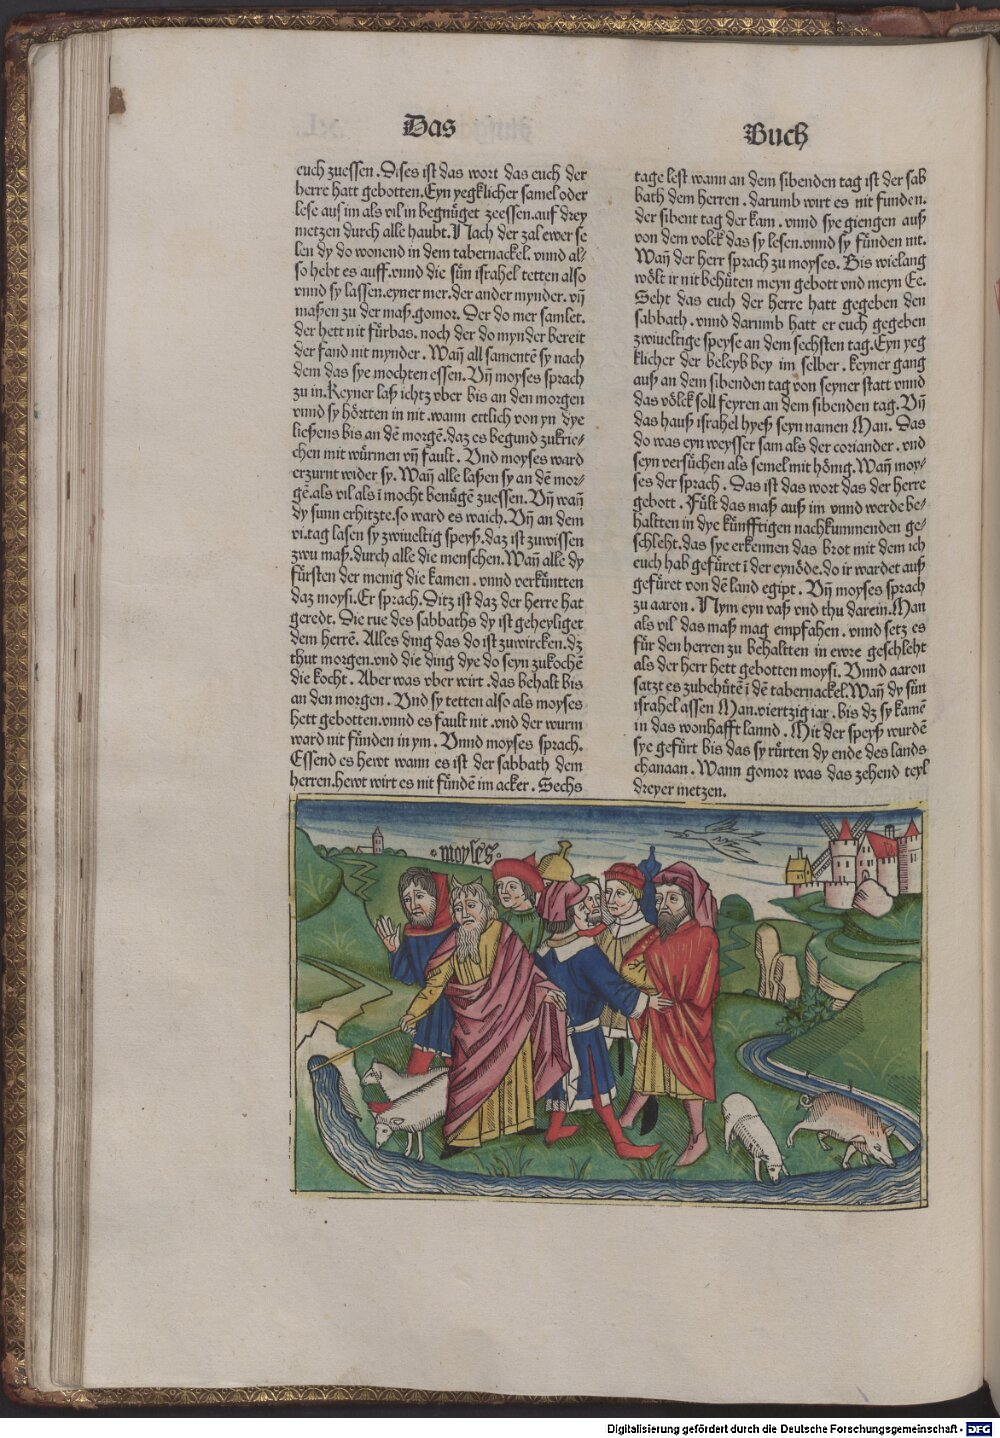 Das
Buch
euch zuessen. Dises ist das wort das euch der
herre hatt gebotten. Eyn yegklicher samel oder
lese auß im als vil in begnüget zeessen. auf drey
metzen durch alle haubt. Nach der zal ewer se
len dy do wonend in dem tabernackel. vnnd al⸗
so hebt es auff. vnnd die sün israhel tetten also
vnnd sy lassen. eyner mer. der ander mynder. vñ
maßen zu der maß. gomor. Der do mer samlet.
der hett nit fürbas. noch der do mynder bereit
der fand nit mynder. Wañ all samentē sy nach
dem das sye mochten essen. Vñ moyses sprach
zu in. Keyner laß ichtz vber bis an den morgen
vnnd sy hörtten in nit. wann ettlich von yn dye
ließens bis an dē morgē. daz es begund zukrie⸗
chen mit würmen vñ fault. Vnd moyses ward
erzurnt wider sy. Wañ alle laßen sy an dē mor⸗
gē. als vil als ī mocht benügē zuessen. Vñ wañ
dy sunn erhitzte. so ward es waich. Vñ an dem
vi. tag lasen sy zwiueltig speyß. daz ist zuwissen
zwu maß. durch alle die menschen. Wañ alle dy
fürsten der menig die kamen. vnnd verkündten
daz moysi. Er sprach. Ditz ist daz der herre hat
geredt. Die rue des sabbaths dy ist geheyliget
dem herrē. Alles ding das do ist zuwircken. dz
thut morgen. vnd die ding dye do seyn zukochē
die kocht. Aber was vber wirt. das behalt bis
an den morgen. Vnd sy tetten also als moyses
hett gebotten. vnnd es fault nit. vnd der wurm
ward nit fünden in ym. Vnnd moyses sprach.
Essend es hewt wann es ist der sabbath dem
herren. hewt wirt es nit fündē im acker. Sechs
tage lest wann an dem sibenden tag ist der sab
bath dem herren. darumb wirt es nit funden.
der sibent tag der kam. vnnd sye giengen auß
von dem volck das sy lesen. vnnd sy fünden nit.
Wañ der herr sprach zu moyses. Bis wielang
wölt ir nit behüten meyn gebott vnd meyn Ee.
Seht das euch der herre hatt gegeben den
sabbath. vnnd darumb hatt er euch gegeben
zwiueltige speyse an dem sechsten tag. Eyn yeg
klicher der beleyb bey im selber. keyner gang
auß an dem sibenden tag von seyner statt vnnd
das völck soll feyren an dem sibenden tag. Vñ
das hauß israhel hyeß seyn namen Man. Das
do was eyn weysser sam als der coriander. vnd
seyn versüchen als semel mit hönig. Wañ moy⸗
ses der sprach. Das ist das wort das der herre
gebott. Fült das maß auß im vnnd werde be⸗
haltten in dye künfftigen nachkummenden ge⸗
schleht. das sye erkennen das brot mit dem ich
euch hab gefüret ī der eynöde. do ir wardet auß
gefüret von dē land egipt. Vñ moyses sprach
zu aaron. Nym eyn vaß vnd thu darein. Man
als vil das maß mag empfahen. vnnd setz es
für den herren zu behaltten in ewre geschleht
als der herr hett gebotten moysi. Vnnd aaron
satzt es zubehütē ī dē tabernackel. Wañ dy sün
israhel assen Man. viertzig iar. bis dz sy kamē
in das wonhafft lannd. Mit der speyß wurdē
sye gefürt bis das sy rürten dy ende des lands
chanaan. Wann gomor was das zehend teyl
dreyer metzen.
moyses
Digitalisierung gefördert durch die Deutsche Forschungsgemeinschaft - DFG